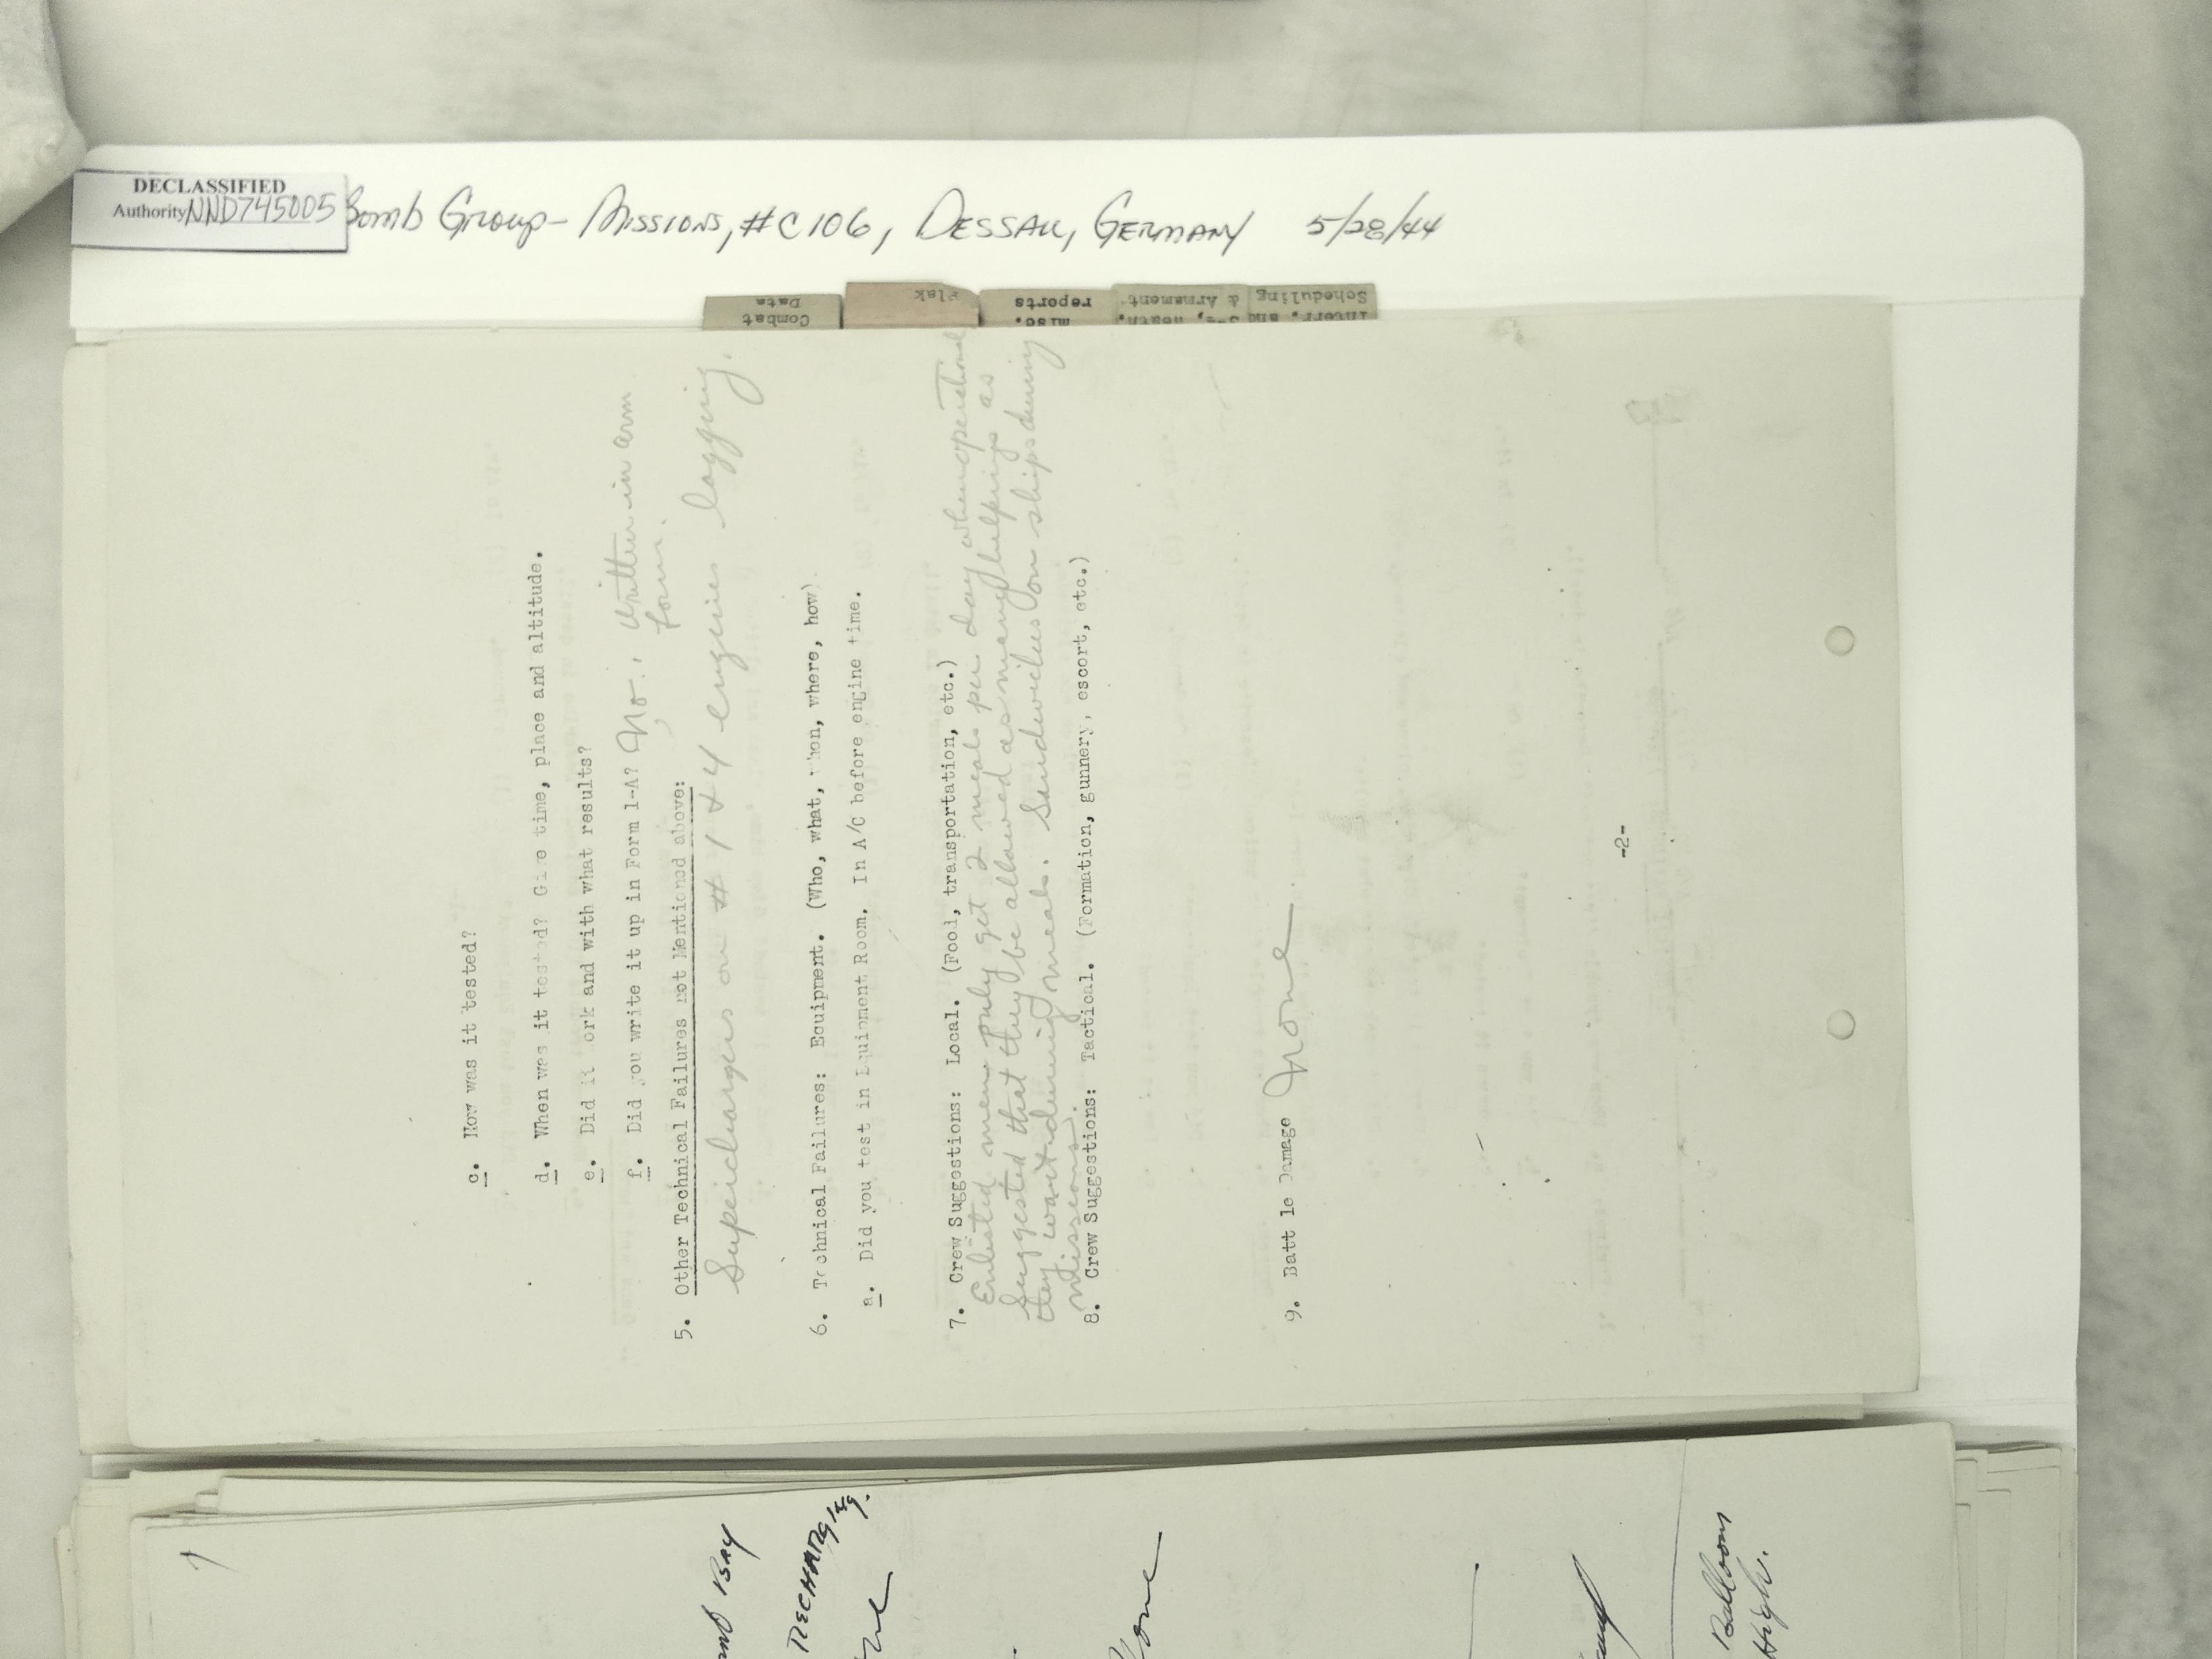 DECLASSIFIED
Authority NND745005
Bomb Group - Missions, #C106, Dessau, Germany 5/28/44
Combat
Data
Flak
misc.
reports
Interr. and S-2, Weath.
Scheduling & Armament.
c. How was it tested?
d. When was it tested? Give time, place and altitude.
e. Did it ork and with what results?
f. Did you write it up in Form 1-A? No. Written in arm
form.
5. Other Technical Failures not Mentioned above:
Superchargers on #1 & 4 engines lagging.
6. Technical Failures: Equipment. (Who, what, when, where, how)
a. Did you test in Equipment Room. In A/C before engine time.
7. Crew Suggestions: Local. (Food, transportation, etc.)
Enlisted men only get 2 meals per day when operational
Suggested that they be allowed as many helpings as
they want during meals. Sandwiches on ships during
missions.
8. Crew Suggestions: Tactical. (Formation, gunnery, escort, etc.)
9. Batt le Damage None
-2-
Bay
None
Balloons
High.